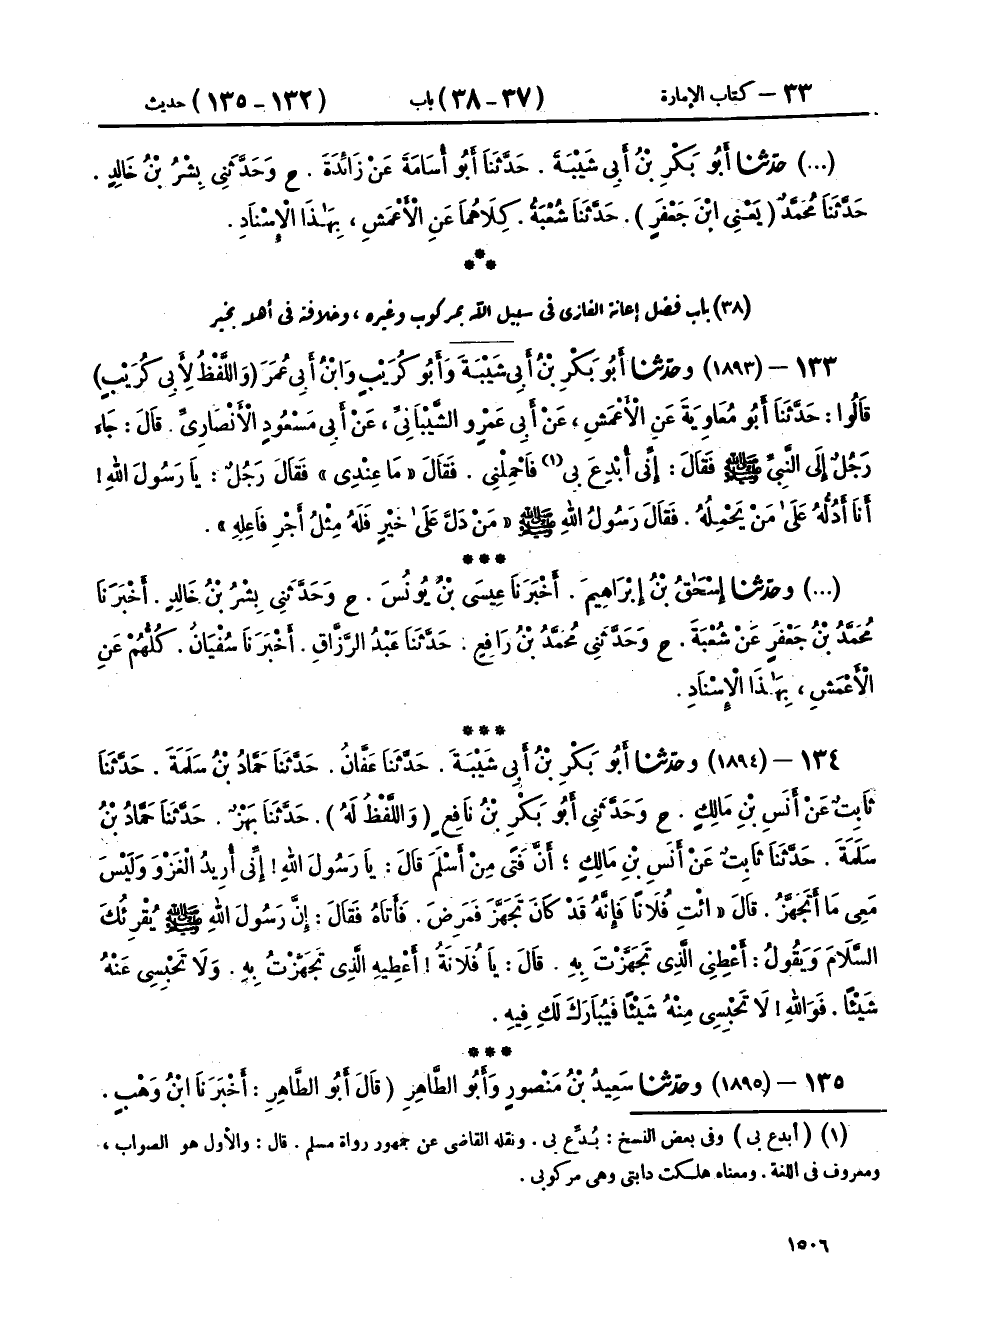 ٣٣ – كتاب الإمارة (٣٧ – ٣٨) باب (١٣٢ – ١٣٥) حديث
(...) حدّثنا أَبُو بَكْرِ بْنُ أَبِي شَيْبَةَ . حَدَّثَنَا أَبُو أُسَامَةَ عَنْ زَائِدَةَ . ح وَحَدَّثَنِي بِشْرُ بْنُ خَالِدٍ .
حَدَّثَنَا مُحَمَّدٌ ( يَعْنِي ابْنَ جَعْفَرٍ ) . حَدَّثَنَا شُعْبَةُ . كِلَاهُمَا عَنِ الْأَعْمَشِ ، بِهَٰذَا الْإِسْنَادِ .
***
(٣٨) باب فضل إعانة الغازى فى سبيل الله بمركوب وغيره ، وخلافته فى أهله بخير
١٣٣ – (١٨٩٣) وحدّثنا أَبُو بَكْرِ بْنُ أَبِي شَيْبَةَ وَأَبُو كُرَيْبٍ وَابْنُ أَبِي عُمَرَ (وَاللَّفْظُ لِأَبِي كُرَيْبٍ)
قَالُوا : حَدَّثَنَا أَبُو مُعَاوِيَةَ عَنِ الْأَعْمَشِ ، عَنْ أَبِي عَمْرٍو الشَّيْبَانِيِّ ، عَنْ أَبِي مَسْعُودٍ الْأَنْصَارِيِّ . قَالَ : جَاءَ
رَجُلٌ إِلَى النَّبِيِّ ﷺ فَقَالَ : إِنِّي أُبْدِعَ بِي(١) فَاحْمِلْنِي . فَقَالَ « مَا عِنْدِي » فَقَالَ رَجُلٌ : يَا رَسُولَ اللهِ !
أَنَا أَدُلُّهُ عَلَىٰ مَنْ يَحْمِلُهُ . فَقَالَ رَسُولُ اللهِ ﷺ « مَنْ دَلَّ عَلَىٰ خَيْرٍ فَلَهُ مِثْلُ أَجْرِ فَاعِلِهِ » .
***
(...) وحدّثنا إِسْحَٰقُ بْنُ إِبْرَاهِيمَ . أَخْبَرَنَا عِيسَى بْنُ يُونُسَ . ح وَحَدَّثَنِي بِشْرُ بْنُ خَالِدٍ . أَخْبَرَنَا
مُحَمَّدُ بْنُ جَعْفَرٍ عَنْ شُعْبَةَ . ح وَحَدَّثَنِي مُحَمَّدُ بْنُ رَافِعٍ . حَدَّثَنَا عَبْدُ الرَّزَّاقِ . أَخْبَرَنَا سُفْيَانُ . كُلُّهُمْ عَنِ
الْأَعْمَشِ ، بِهَٰذَا الْإِسْنَادِ .
***
١٣٤ – (١٨٩٤) وحدّثنا أَبُو بَكْرِ بْنُ أَبِي شَيْبَةَ . حَدَّثَنَا عَفَّانُ . حَدَّثَنَا حَمَّادُ بْنُ سَلَمَةَ . حَدَّثَنَا
ثَابِتٌ عَنْ أَنَسِ بْنِ مَالِكٍ . ح وَحَدَّثَنِي أَبُو بَكْرِ بْنُ نَافِعٍ ( وَاللَّفْظُ لَهُ ) . حَدَّثَنَا بَهْزٌ . حَدَّثَنَا حَمَّادُ بْنُ
سَلَمَةَ . حَدَّثَنَا ثَابِتٌ عَنْ أَنَسِ بْنِ مَالِكٍ ؛ أَنَّ فَتًى مِنْ أَسْلَمَ قَالَ : يَا رَسُولَ اللهِ ! إِنِّي أُرِيدُ الْغَزْوَ وَلَيْسَ
مَعِي مَا أَتَجَهَّزُ . قَالَ « ائْتِ فُلَانًا فَإِنَّهُ قَدْ كَانَ تَجَهَّزَ فَمَرِضَ . فَأَتَاهُ فَقَالَ : إِنَّ رَسُولَ اللهِ ﷺ يُقْرِئُكَ
السَّلَامَ وَيَقُولُ : أَعْطِنِي الَّذِي تَجَهَّزْتَ بِهِ . قَالَ : يَا فُلَانَةُ ! أَعْطِيهِ الَّذِي تَجَهَّزْتُ بِهِ . وَلَا تَحْبِسِي عَنْهُ
شَيْئًا . فَوَاللهِ ! لَا تَحْبِسِي مِنْهُ شَيْئًا فَيُبَارَكَ لَكِ فِيهِ .
***
١٣٥ – (١٨٩٥) وحدّثنا سَعِيدُ بْنُ مَنْصُورٍ وَأَبُو الطَّاهِرِ ( قَالَ أَبُو الطَّاهِرِ : أَخْبَرَنَا ابْنُ وَهْبٍ .
(١) ( أبدع بى ) وفى بعض النسخ : بُدِّع بى . ونقله القاضى عن جمهور رواة مسلم . قال : والأول هو الصواب ،
ومعروف فى اللغة . ومعناه هلكت دابتى وهى مركوبى .
١٥٠٦